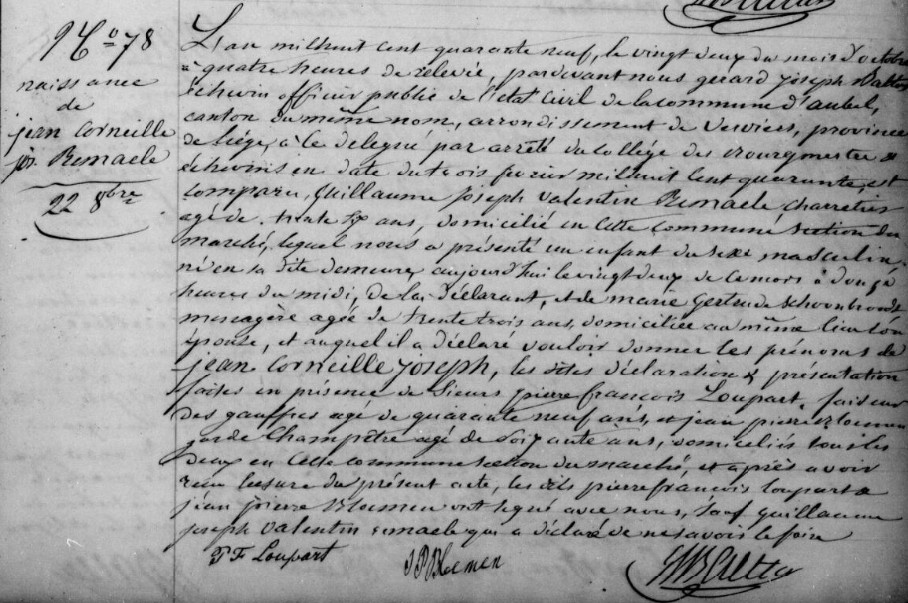 No 78
naissance
de
jean Corneille
jos. Remacle
22 8bre
L'an mil huit cent quarante neuf, le vingt deux du mois d'octobre
à quatre heures de relevée, pardevant nous gerard joseph
Echevin officier public de l'état civil de la commune d'aubel,
canton du même nom, arrondissement de Verviers, province
de Liége, à ce delegué par arrêté du collége des Bourgmestre &
Echevins en date du trois fevrier mil huit cent quarante, est
comparu, Guillaume joseph Valentin Remacle charretier
agé de trente six ans, domicilié en cette commune section du
marché, lequel nous a présenté un enfant du sexe masculin
né en sa dite demeure, aujourd'hui le vingt deux de ce mois à douze
heures du midi, de lui déclarant, et de marie Gertrude
menagère agée de trente trois ans, domiciliée au même lieu son
épouse, et auquel il a déclaré vouloir donner les prénoms de
jean Corneille joseph, les dites déclaration & présentation
faites en présence de Sieurs pierre francois Loupart, faiseur
des gauffres agé de quarante neuf ans, et jean pierre Bloemen
garde Champêtre agé de soixante ans, domiciliés tous les
deux en cette commune section du marché, et après avoir
recu lecture du présent acte, les dits pierre francois loupart &
jean pierre Bloemen ont signé avec nous, sauf guillaume
joseph Valentin remacle qui a déclaré de ne savoir le faire
P F Loupart
J P Bloemen